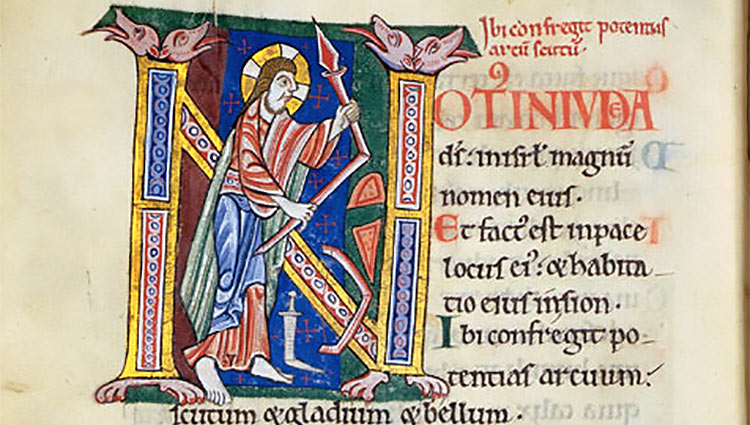 Ibi confregit potentias
arcū scutū.
NOTꝰ IN IUDEA
ds̄: in isrł magnū
nomen eius.
Et factꝰ est in pace
locus eiꝰ: & habita-
tio eius in sion.
Ibi confregit po-
tentias arcuum:
scutum & gladium & bellum.